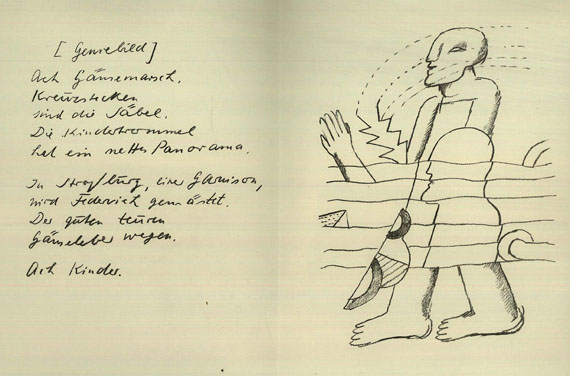 [Genrebild]
Ach Gänsemarsch.
sind die Säbel.
Die Kindertrommel
hat ein nettes Panorama.
In Straßburg, einer Garnison,
wird Federvieh gemästet.
Der guten teuren
Gänseleber wegen.
Ach Kinder.